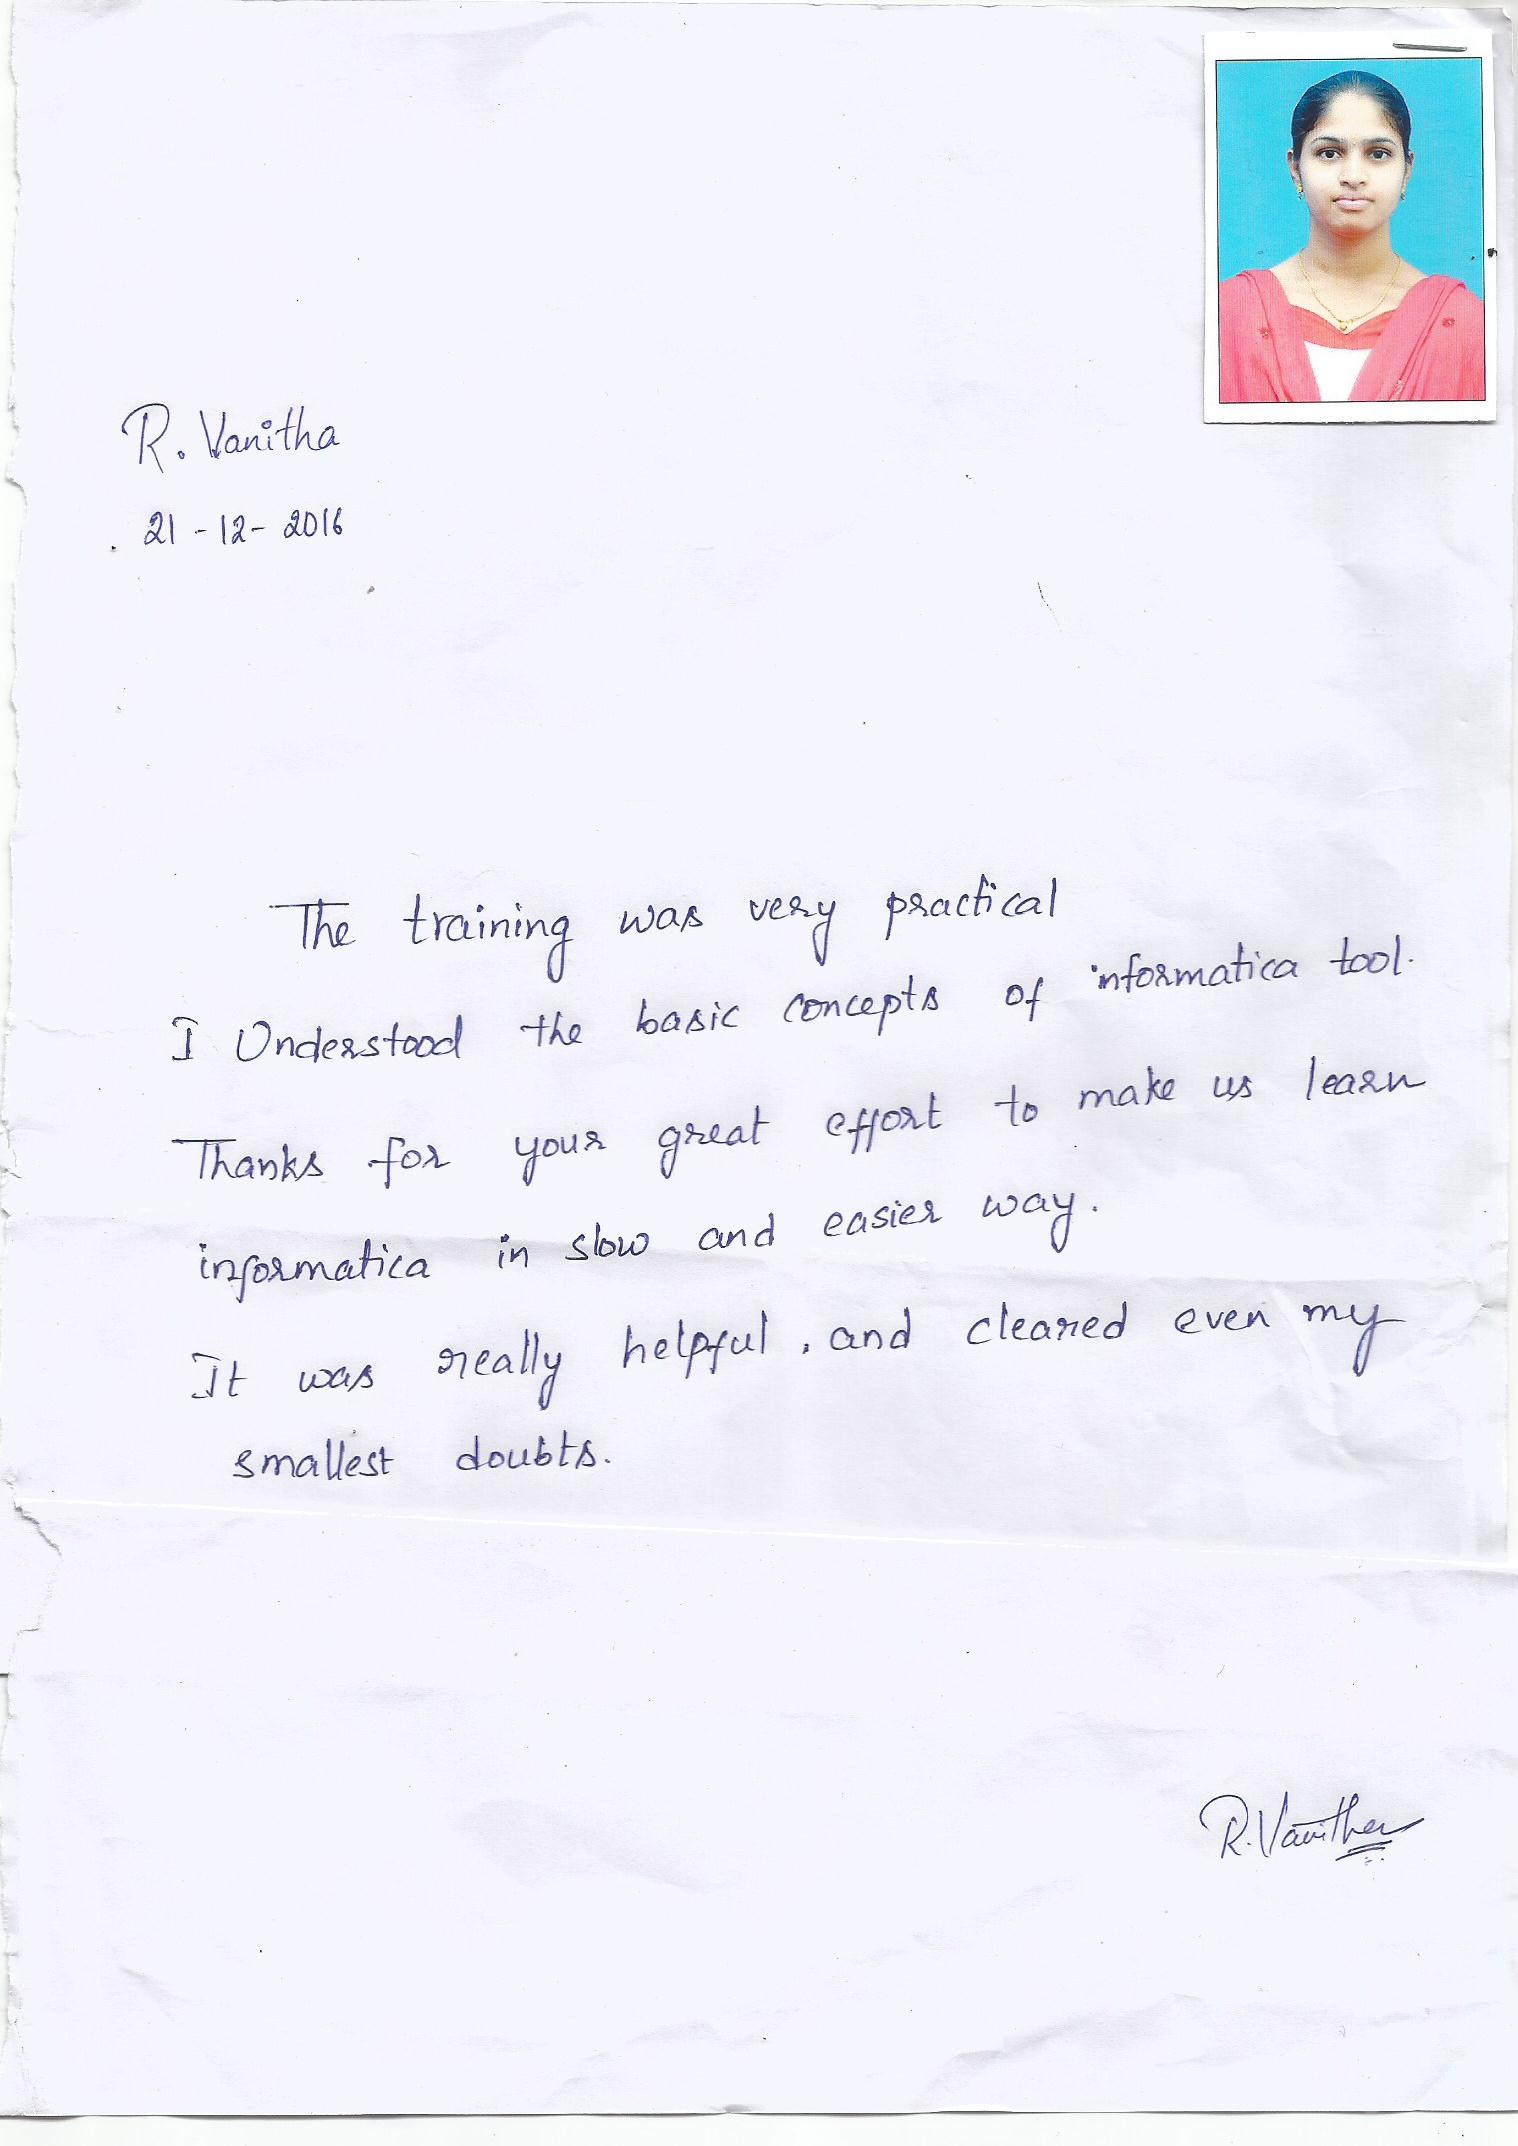 R. Vanitha
21-12-2016
The training was very practical
I Understood the basic concepts of informatica tool.
Thanks for your great effort to make us learn
informatica in slow and easier way.
It was really helpful, and cleared even my
smallest doubts.
R.Vanitha